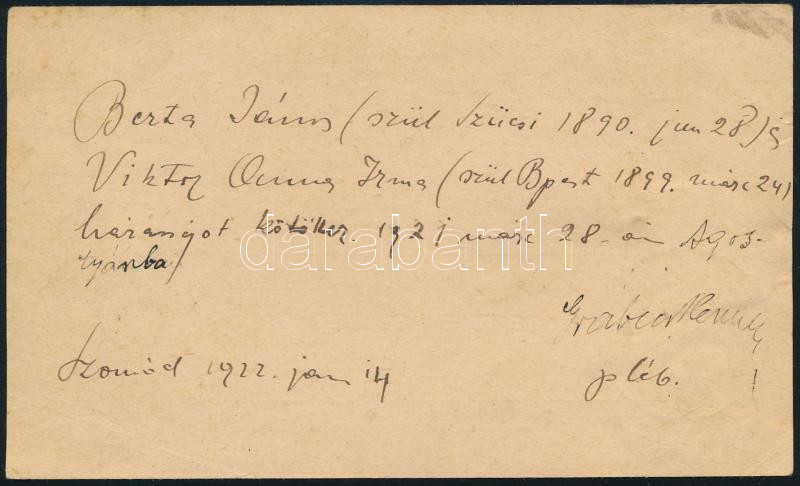 Berta János (szül Szücsi 1890. jun 28) és
Viktor Anna Irma (szül Bpest 1899. márc 24)
házaságot kötöttek. 1921 márc 28-án Agos-
tyánba
darabanth
pléb.
Szomód 1922. jan 14